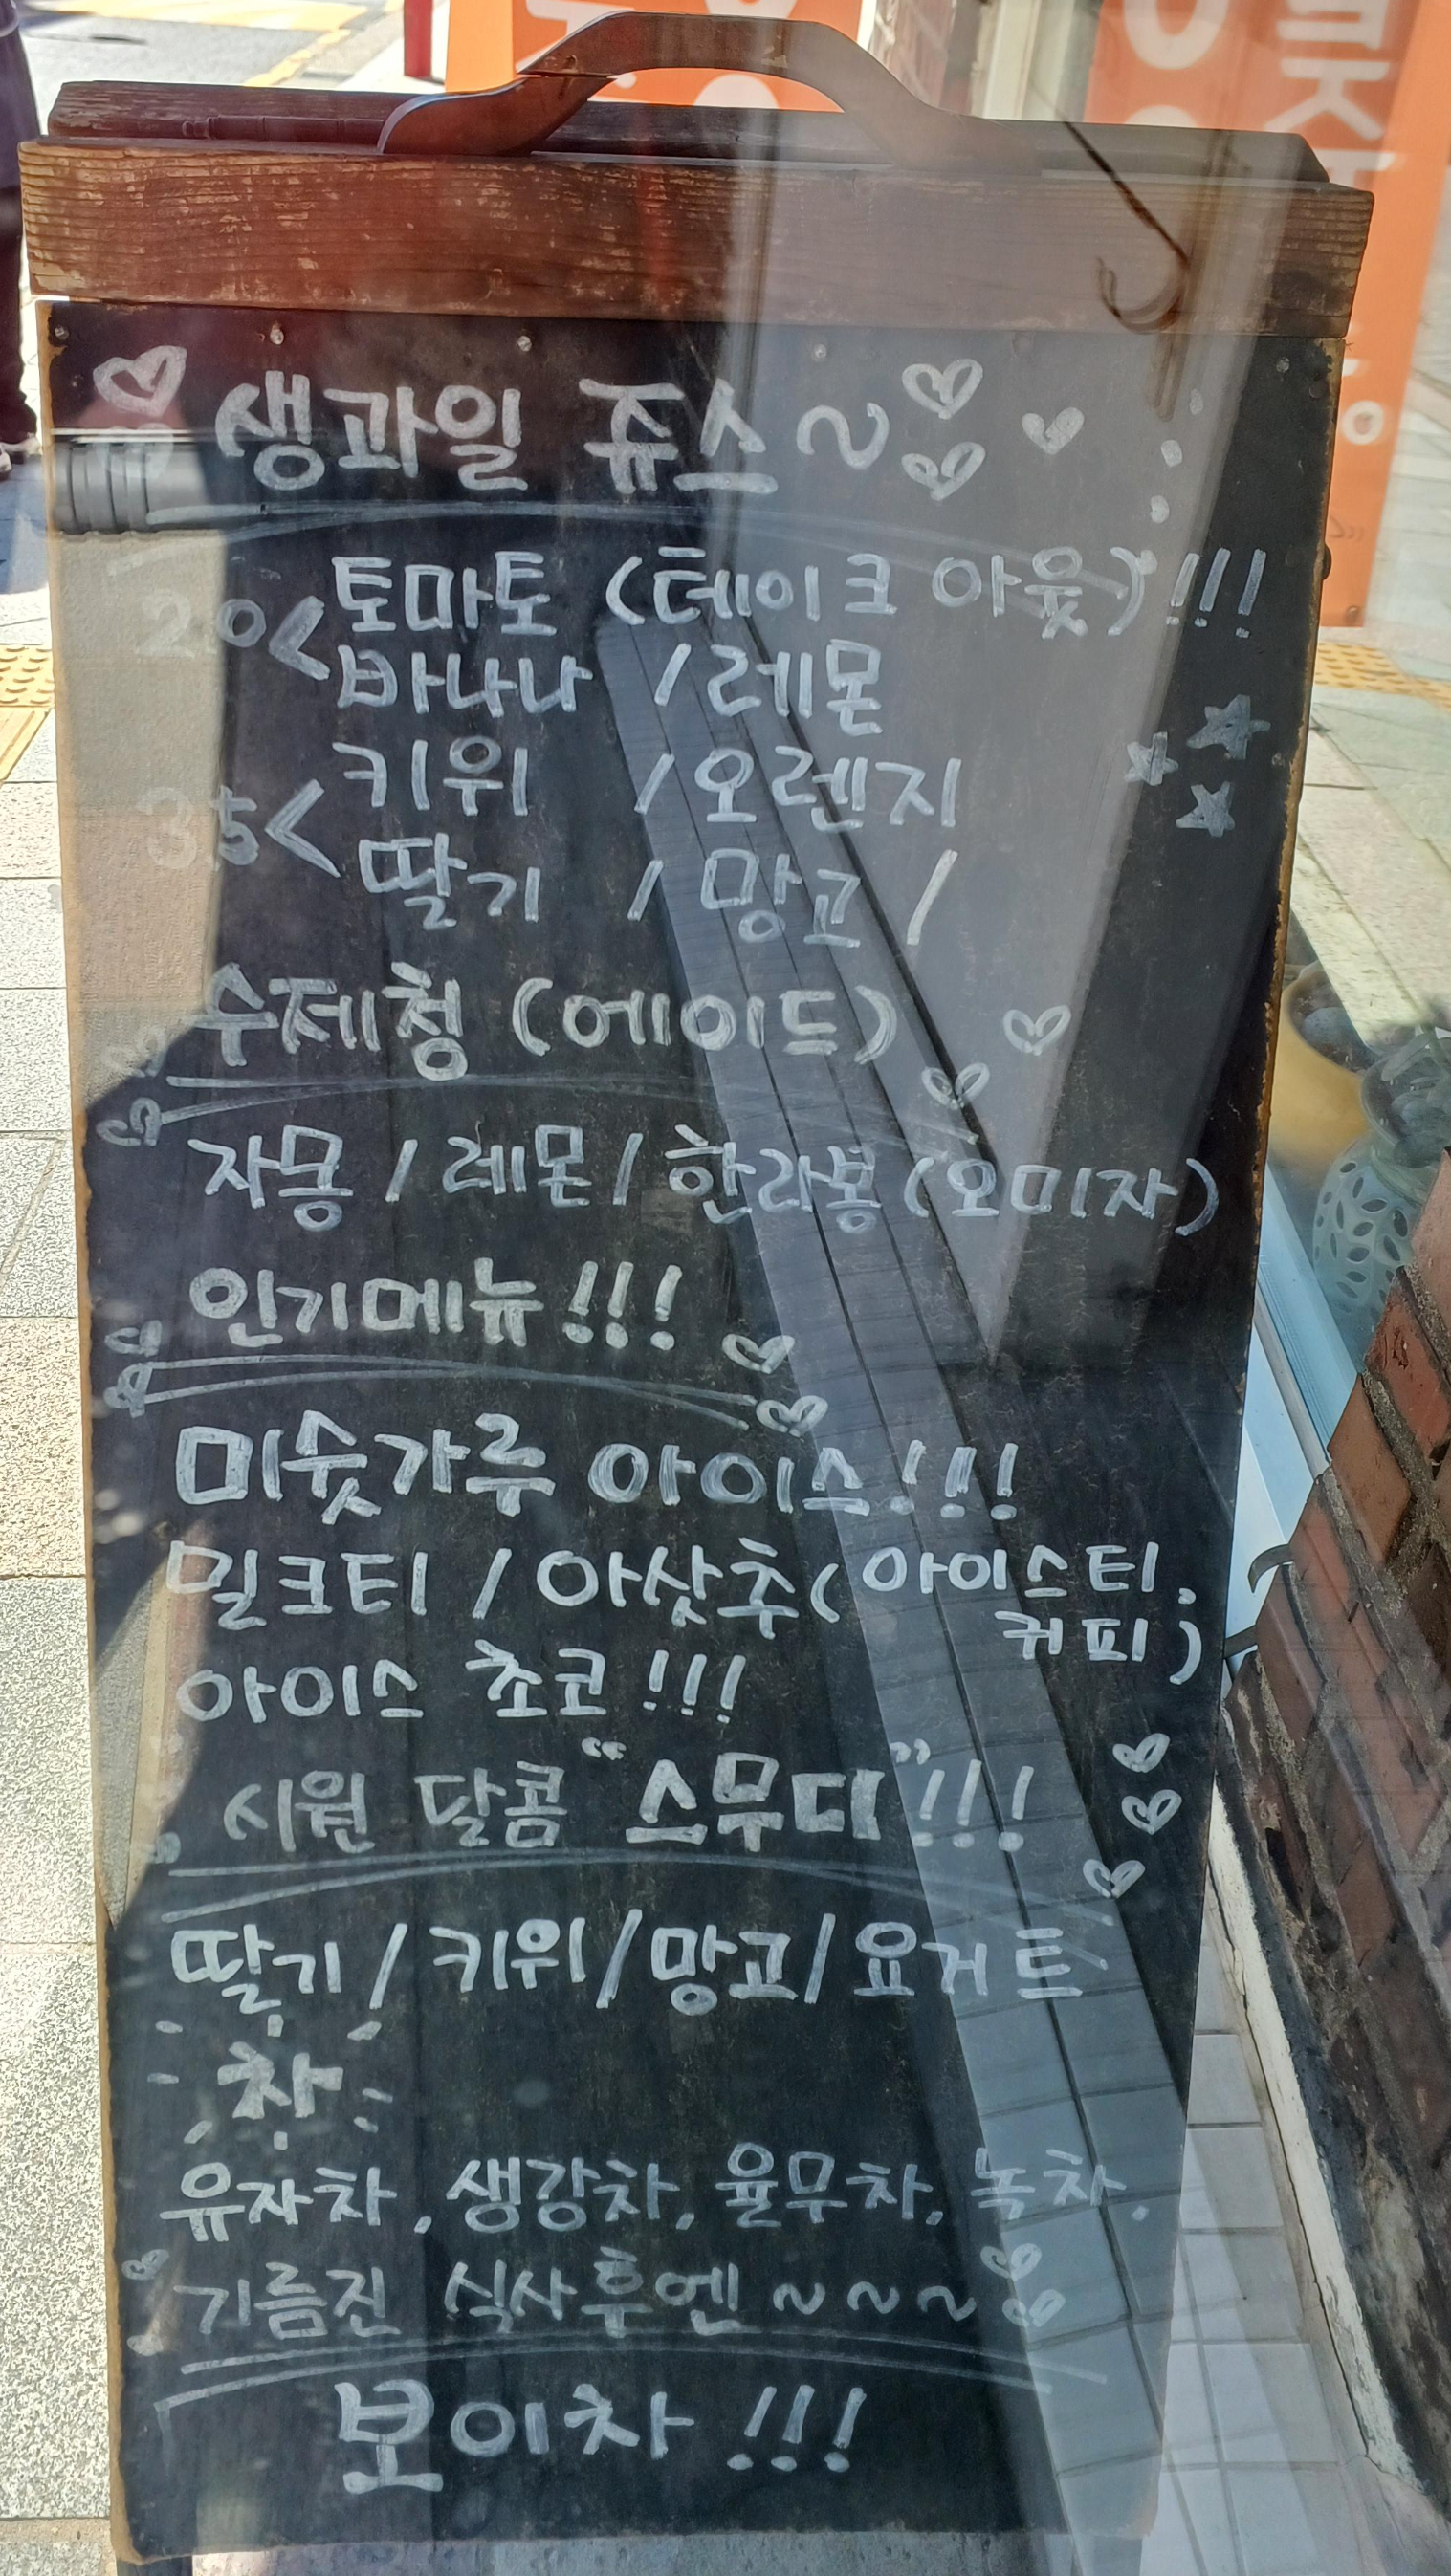 생과일 쥬스~
토마토 (테이크 아웃)!!!
20<
바나나 / 레몬
키위 / 오렌지
35<
딸기 / 망고 /
수제청 (에이드)
자몽 / 레몬 / 한라봉 (오미자)
인기메뉴!!!
미숫가루 아이스!!!
밀크티 / 아샷추 (아이스티,
커피)
아이스 초코!!!
시원 달콤 "스무디"!!!
딸기 / 키위 / 망고 / 요거트
차
유자차, 생강차, 율무차, 녹차,
기름진 식사후엔~~~
보이차!!!